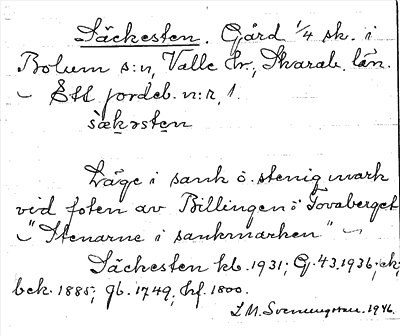 Säckesten. Gård 1/4 sk. i
Bolum s:n, Valle hr., Skarab. län.
– Ett jordeb. n:r, 1.
sækəsten
Läge i sank o. stenig mark
vid foten av Billingen o Tovaberget
– "Stenarne i sankmarken" –
Säckesten kb. 1931; Gj. 43. 1936; ek;
bek. 1885; gb. 1749; hf. 1800.
L.M. Svenungsson. 1946.